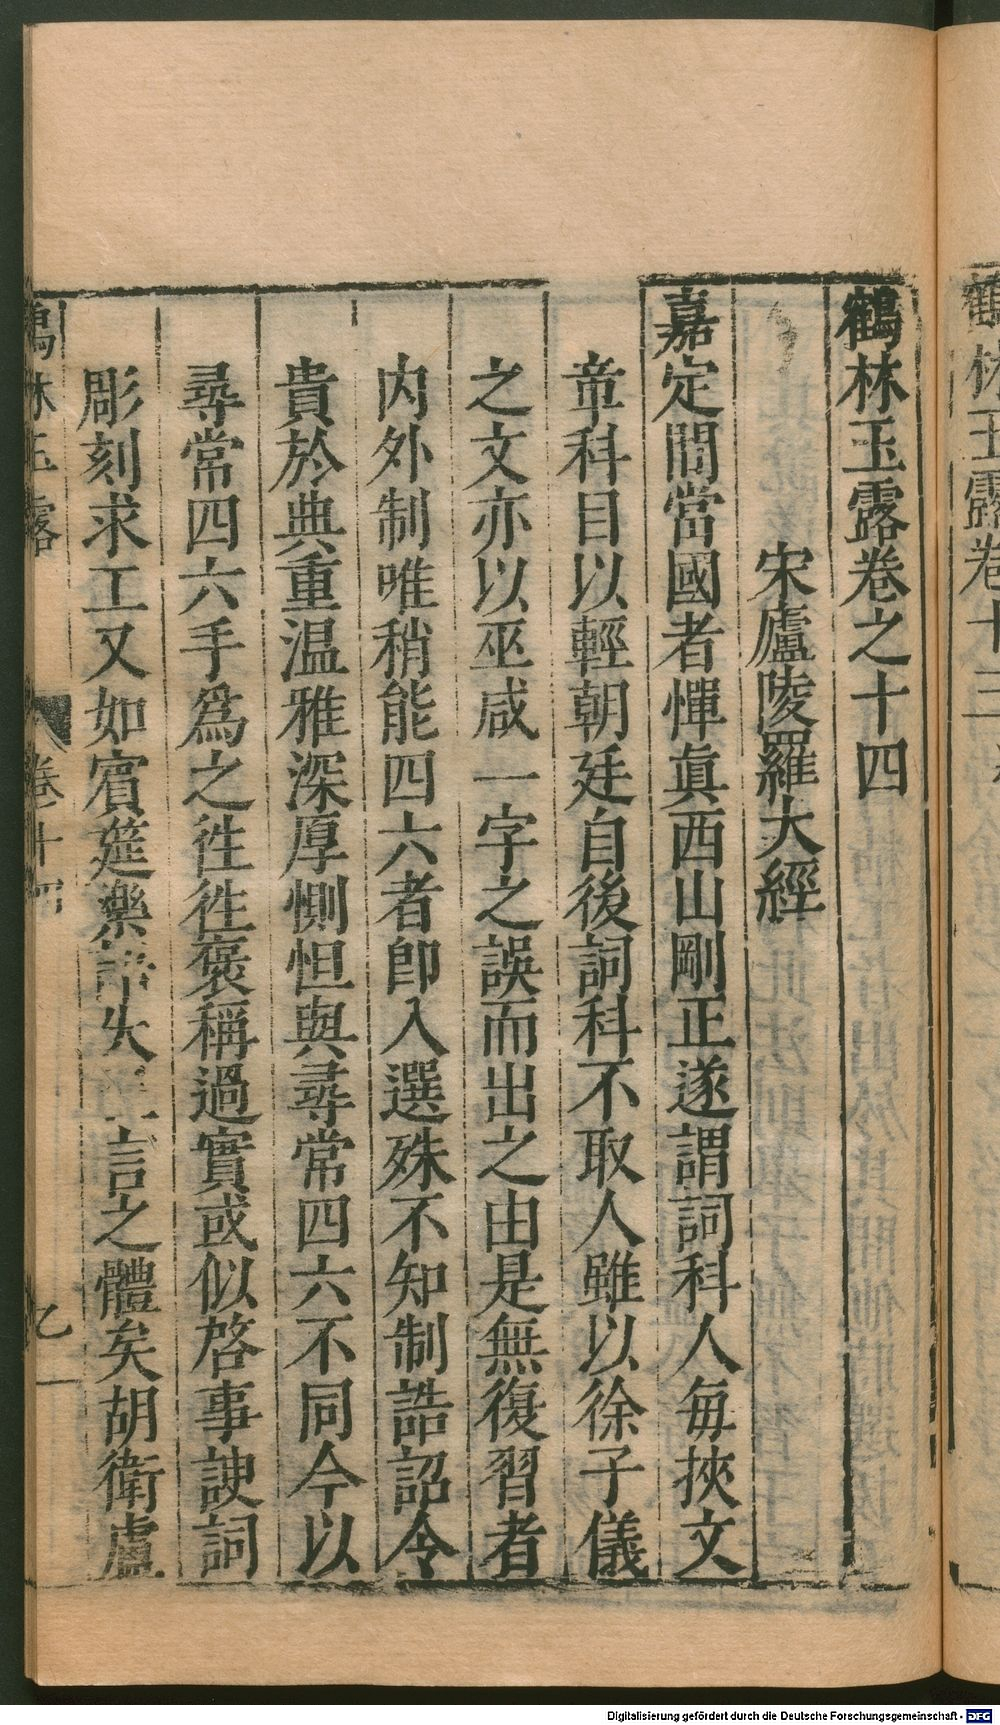 鶴林玉露卷之十四
宋廬陵羅大經
嘉定間當國者憚眞西山剛正遂謂詞科人每挾文
章科目以輕朝廷自後詞科不取人雖以徐子儀
之文亦以巫咸一字之誤而出之由是無復習者
内外制唯稍能四六者卽入選殊不知制誥詔令
貴於典重温雅深厚惻怛與尋常四六不同今以
尋常四六手爲之徃徃褒稱過實或似啓事諛詞
彫刻求工又如賓筵樂語失王言之體矣胡衛盧
鶴林玉露
卷十四
乙一
鶴林玉露卷十三
Digitalisierung gefördert durch die Deutsche Forschungsgemeinschaft - DFG